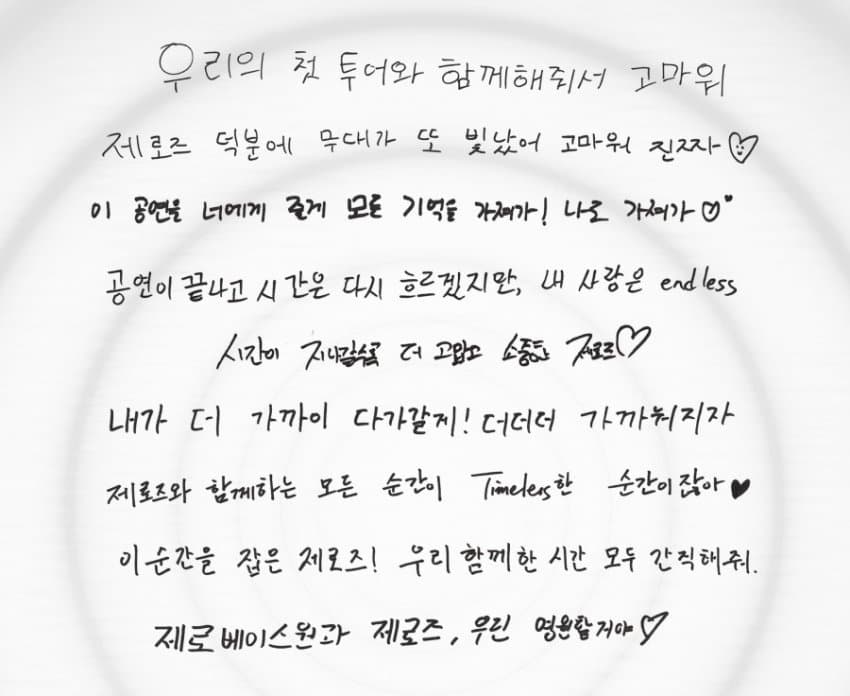 우리의 첫 투어와 함께해줘서 고마워
제로즈 덕분에 무대가 또 빛났어 고마워 진짜 ♡
이 공연을 너에게 줄게 모든 기억을 가져가! 나로 가져가 ♡
공연이 끝나고 시간은 다시 흐르겠지만, 내 사랑은 endless
시간이 지나갈수록 더 고맙고 소중한 제로즈♡
내가 더 가까이 다가갈게! 더더더 가까워지자
제로즈와 함께하는 모든 순간이 Timeless한 순간이잖아 ♥
이 순간을 잡은 제로즈! 우리 함께한 시간 모두 간직해줘.
제로베이스원과 제로즈, 우린 영원할거야♡